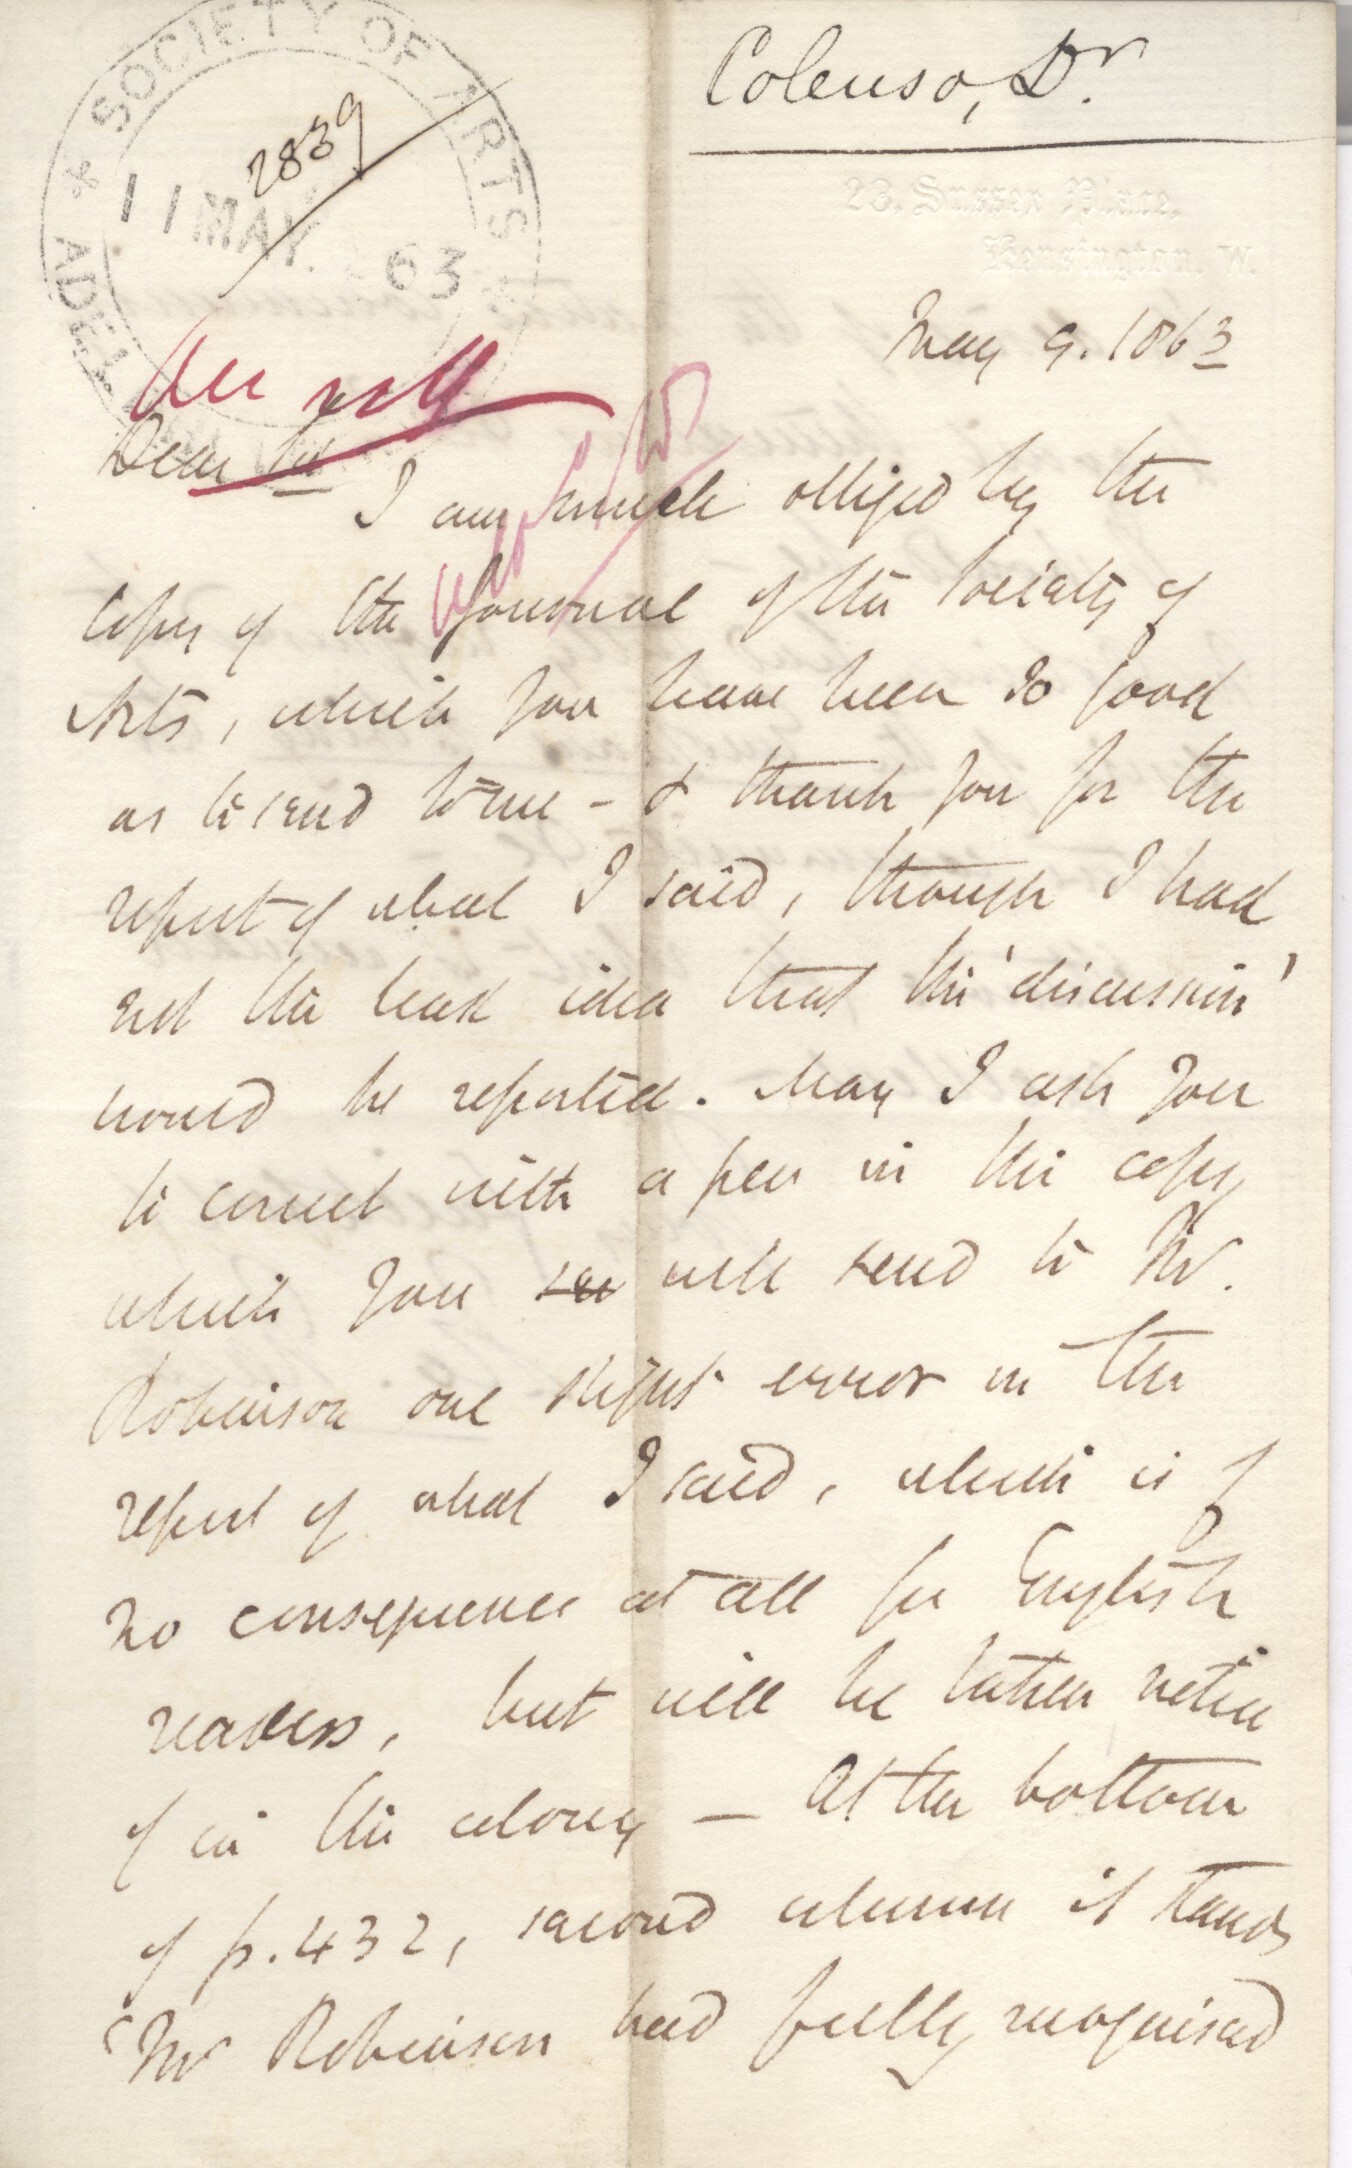 Colenso, Dr.
SOCIETY OF ARTS
ADEL
2839
11 MAY. 63
23. Sussex Place.
Kensington W.
May 9. 1863
Dear Sir
I am much obliged by the
copy of the Journal of the Society of
Arts, which you have been so good
as to send to me - & thank you for the
report of what I said, though I had
not the least idea that the 'discussion'
would be reported. May I ask you
to correct with a pen in the copy
which you will send to Mr.
Robinson one slight error in the
report of what I said, which is of
no consequence at all for English
readers, but will be taken notice
of in the colony - At the bottom
of p. 432, second column it stands
'Mr Robinson had fully recognised